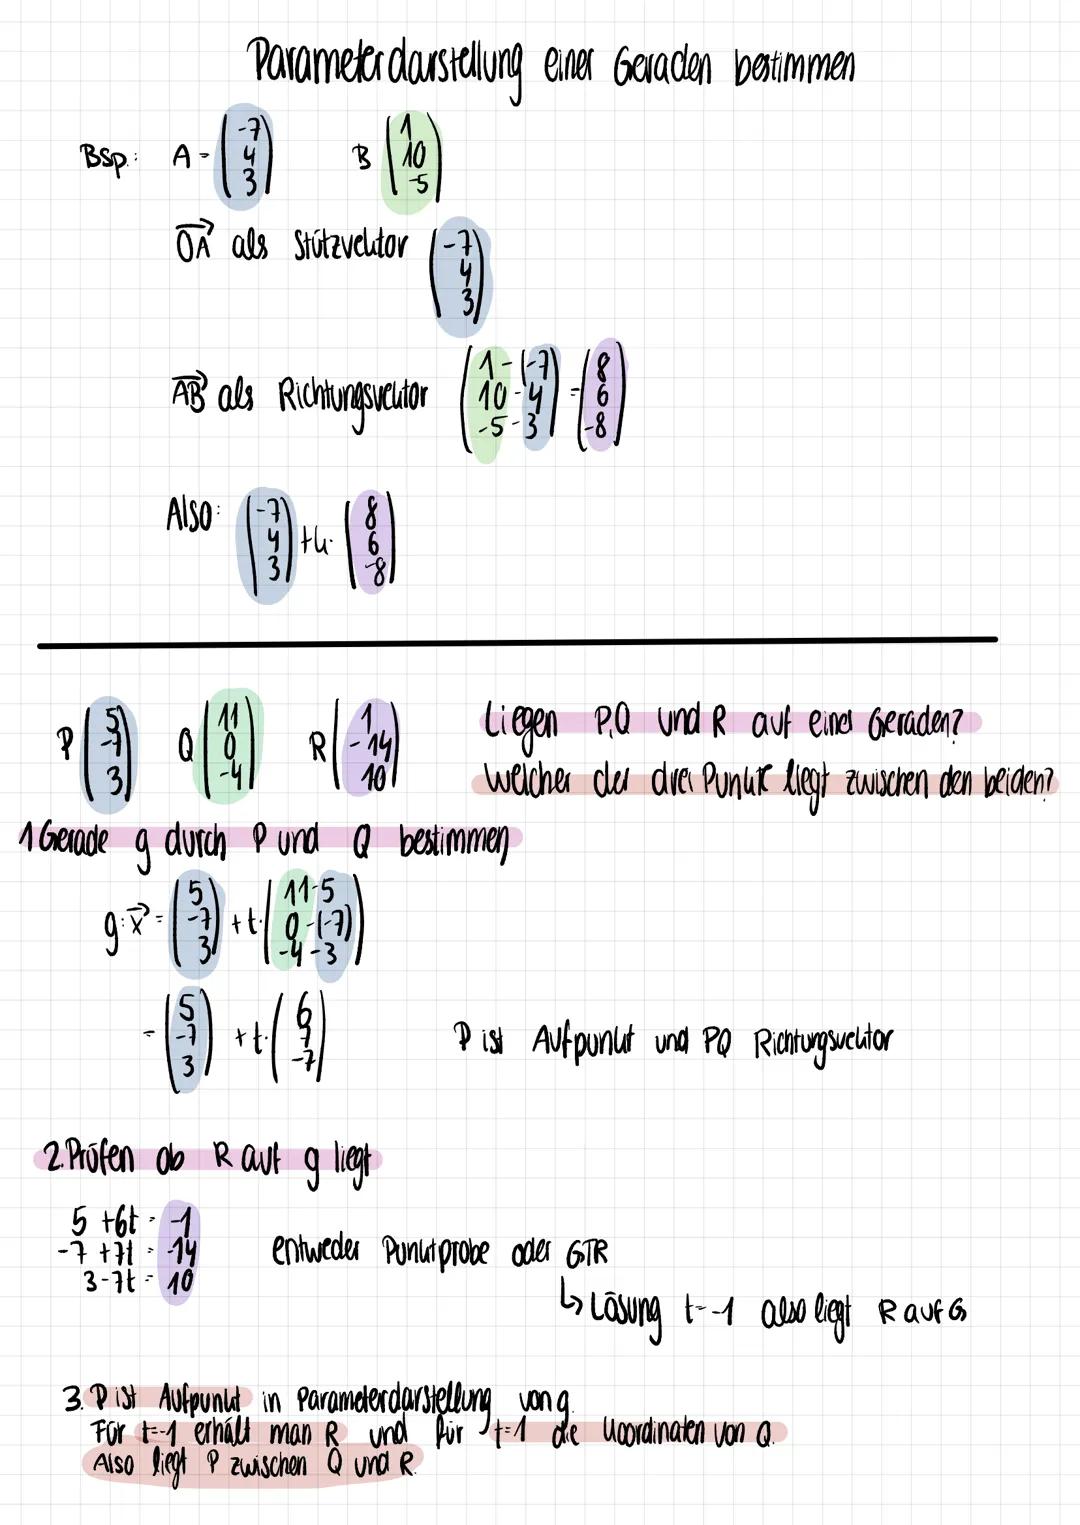 Parameterdarstellung einer Geraden bestimmen
Bsp.: A = (-7 4 3) B (1 10 -5)
OA als Stützvektor (-7 4 3)
AB als Richtungsvektor (1-(-7) 10-4 -5-3) = (8 6 -8)
Also: (-7 4 3) + k · (8 6 -8)
P (5 -7 3) Q (11 0 -4) R (-1 -14 10)
Liegen P,Q und R auf einer Geraden?
Welcher der drei Punkte liegt zwischen den beiden?
1 Gerade g durch P und Q bestimmen
g: x = (5 -7 3) + t · (11-5 0-(-7) -4-3)
= (5 -7 3) + t · (6 7 -7)
P ist Aufpunkt und PQ Richtungsvektor
2. Prüfen ob R auf g liegt
5 + 6t = -1
-7 + 7t = -14
3 - 7t = 10
entweder Punktprobe oder GTR
↳ Lösung t = -1 also liegt R auf G
3. P ist Aufpunkt in Parameterdarstellung von g.
Für t=-1 erhält man R und für t=1 die Koordinaten von Q.
Also liegt P zwischen Q und R.